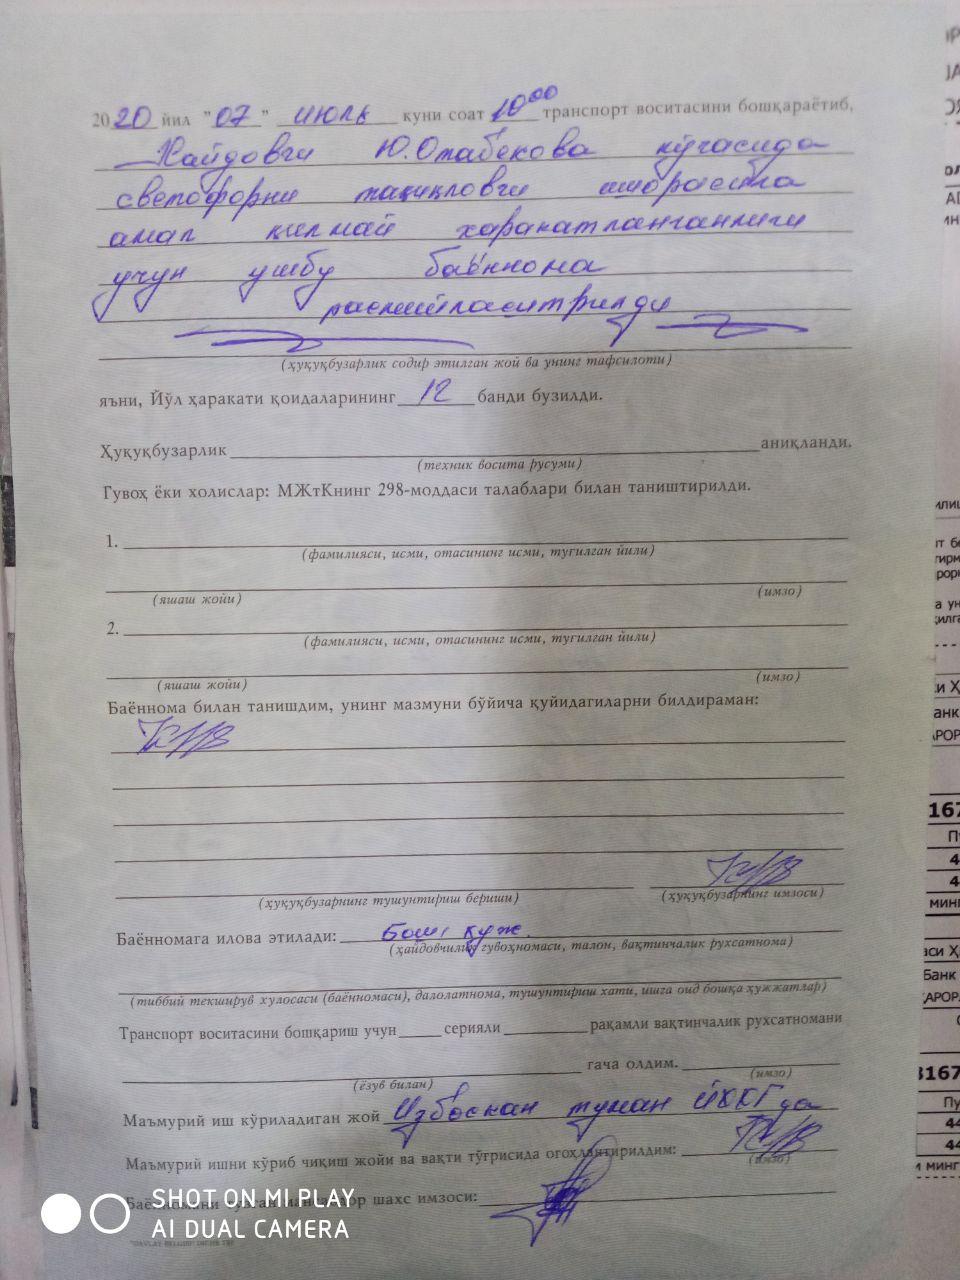 2020 йил "07" июль куни соат 10⁰⁰ транспорт воситасини бошқараётиб,
Хайдовчи Ю.Отабекова кўчасида
светофорни тақиқловчи ишорасига
амал қилмай харакатланганлиги
учун ушбу баённома
расмийлаштрилди
(ҳуқуқбузарлик содир этилган жой ва унинг тафсилоти)
яъни, Йўл ҳаракати қоидаларининг 12 банди бузилди.
Ҳуқуқбузарлик аниқланди.
(техник восита русуми)
Гувоҳ ёки холислар: МЖтКнинг 298-моддаси талаблари билан таништирилди.
1.
(фамилияси, исми, отасининг исми, туғилган йили)
(яшаш жойи) (имзо)
2.
(фамилияси, исми, отасининг исми, туғилган йили)
(яшаш жойи) (имзо)
Баённома билан танишдим, унинг мазмуни бўйича қуйидагиларни билдираман:
(ҳуқуқбузарнинг тушунтириш бериши) (ҳуқуқбузарнинг имзоси)
Баённомага илова этилади:
(ҳайдовчилик гувоҳномаси, талон, вақтинчалик рухсатнома)
(тиббий текширув хулосаси (баённомаси), далолатнома, тушунтириш хати, ишга оид бошқа ҳужжатлар)
Транспорт воситасини бошқариш учун серияли рақамли вақтинчалик рухсатномани
гача олдим.
(ёзув билан) (имзо)
Маъмурий иш кўриладиган жой Избоскан туман ЙҲХГда
Маъмурий ишни кўриб чиқиш жойи ва вақти тўғрисида огоҳлантирилдим:
(имзо)
Баённомани тузган мансабдор шахс имзоси:
SHOT ON MI PLAY
AI DUAL CAMERA